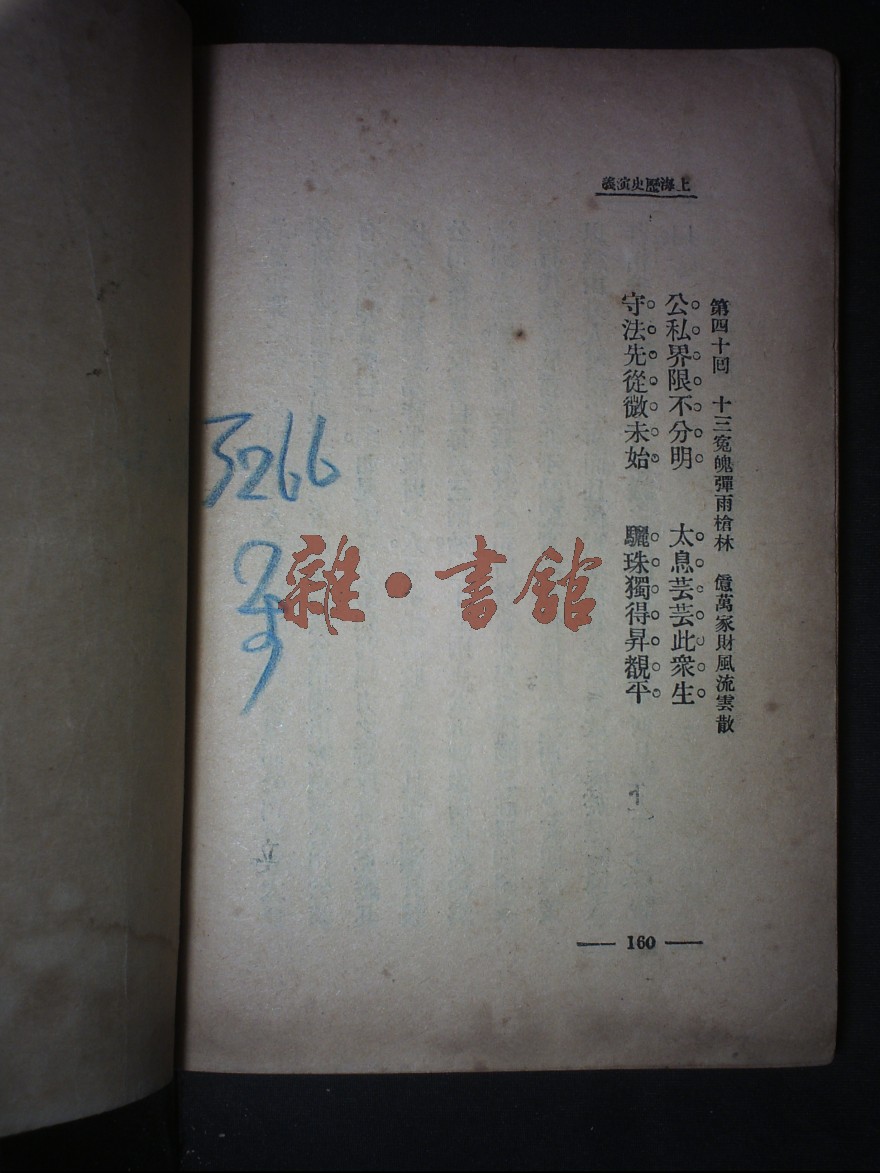 上海歷史演義
第四十回　十三冤魄彈雨槍林　億萬家財風流雲散
公。私。界。限。不。分。明。　太。息。芸。芸。此。衆。生。
守。法。先。從。微。未。始。　驪。珠。獨。得。昇。覩。平。
— 160 —
5266
雜·書館